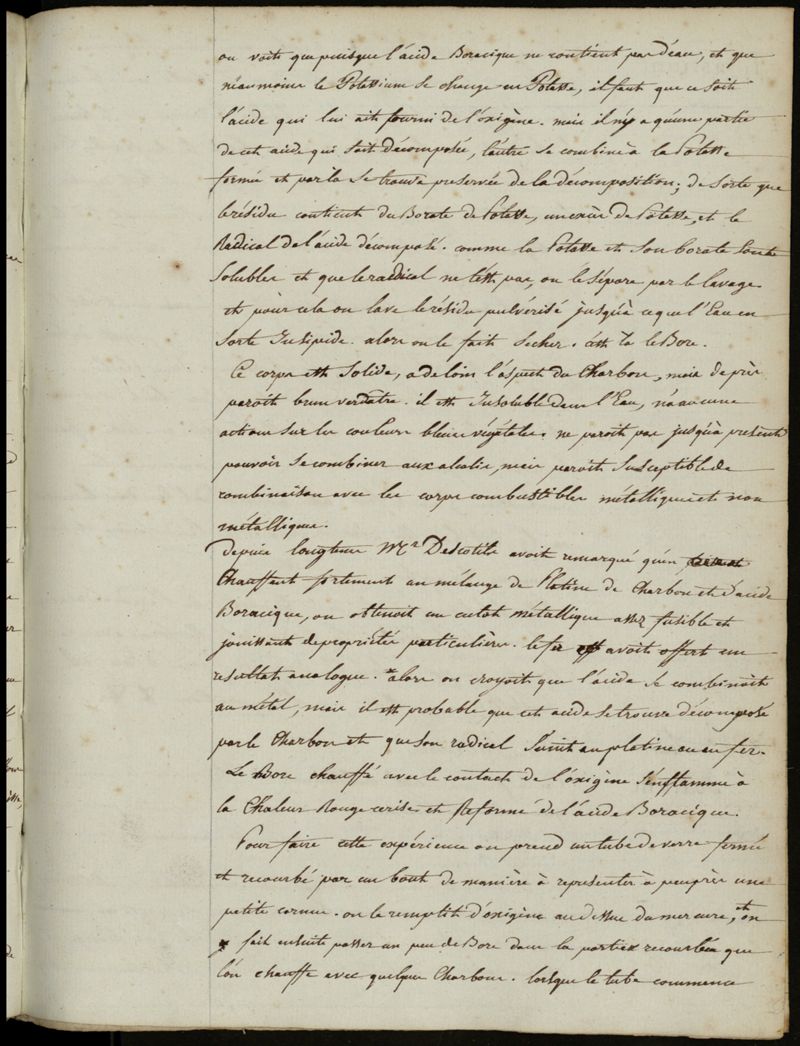 on voit que puisque l'acide Boracique ne contient pas d'eau, et que
néanmoins le Potassium se change en Potasse, il faut que ce soit
l'acide qui lui ait fourni de l'oxigène. mais il n'y a qu'une partie
de cet acide qui soit décomposée, l'autre se combine à la Potasse
formée et par là se trouve preservée de la décomposition; de sorte que
le résidu contient du Borate de Potasse, un excès de Potasse, et le
Radical de l'acide décomposé. comme la Potasse et son borate sont
Solubles et que le radical ne l'est pas, on le sépare par le lavage
et pour cela on lave le résidu pulvérisé jusqu'à ce que l'Eau en
sorte Insipide. alors on le fait secher. c'est là le Bore.
Ce corps est Solide, a de loin l'aspect du Charbon, mais de près
paroît brun verdatre. il est Insoluble dans l'Eau, n'a aucune
action sur les couleurs bleues végétales. ne paroit pas jusqu'à présent
pouvoir se combiner aux alcalis, mais paroit Susceptible de
combinaison avec les corps combustibles métalliques et non
métalliques.
depuis longtems Mr Descotils avoit remarqué qu'en
Chauffant fortement un mélange de Platine de Charbon et d'acide
Boracique, on obtenoit un culot métallique assez fusible et
jouissant de propriétés particulières. le fer avoit offert un
resultat analogue. alors on croyoit que l'acide se combinoit
au métal, mais il est probable que cet acide se trouve décomposé
par le Charbon et que son radical S'unit au platine ou au fer.
Le Bore chauffé avec le contact de l'oxigène S'enflamme à
la Chaleur Rouge cerise et Reforme de l'acide Boracique.
Pour faire cette expérience on prend un tube de verre fermé
et recourbé par un bout de manière à representer à peuprès une
petite cornue. on le remplit d'oxigène au dessus du mercure, et on
fait ensuite passer un peu de Bore dans la partie recourbée que
l'on chauffe avec quelques Charbons. lorsque le tube commence